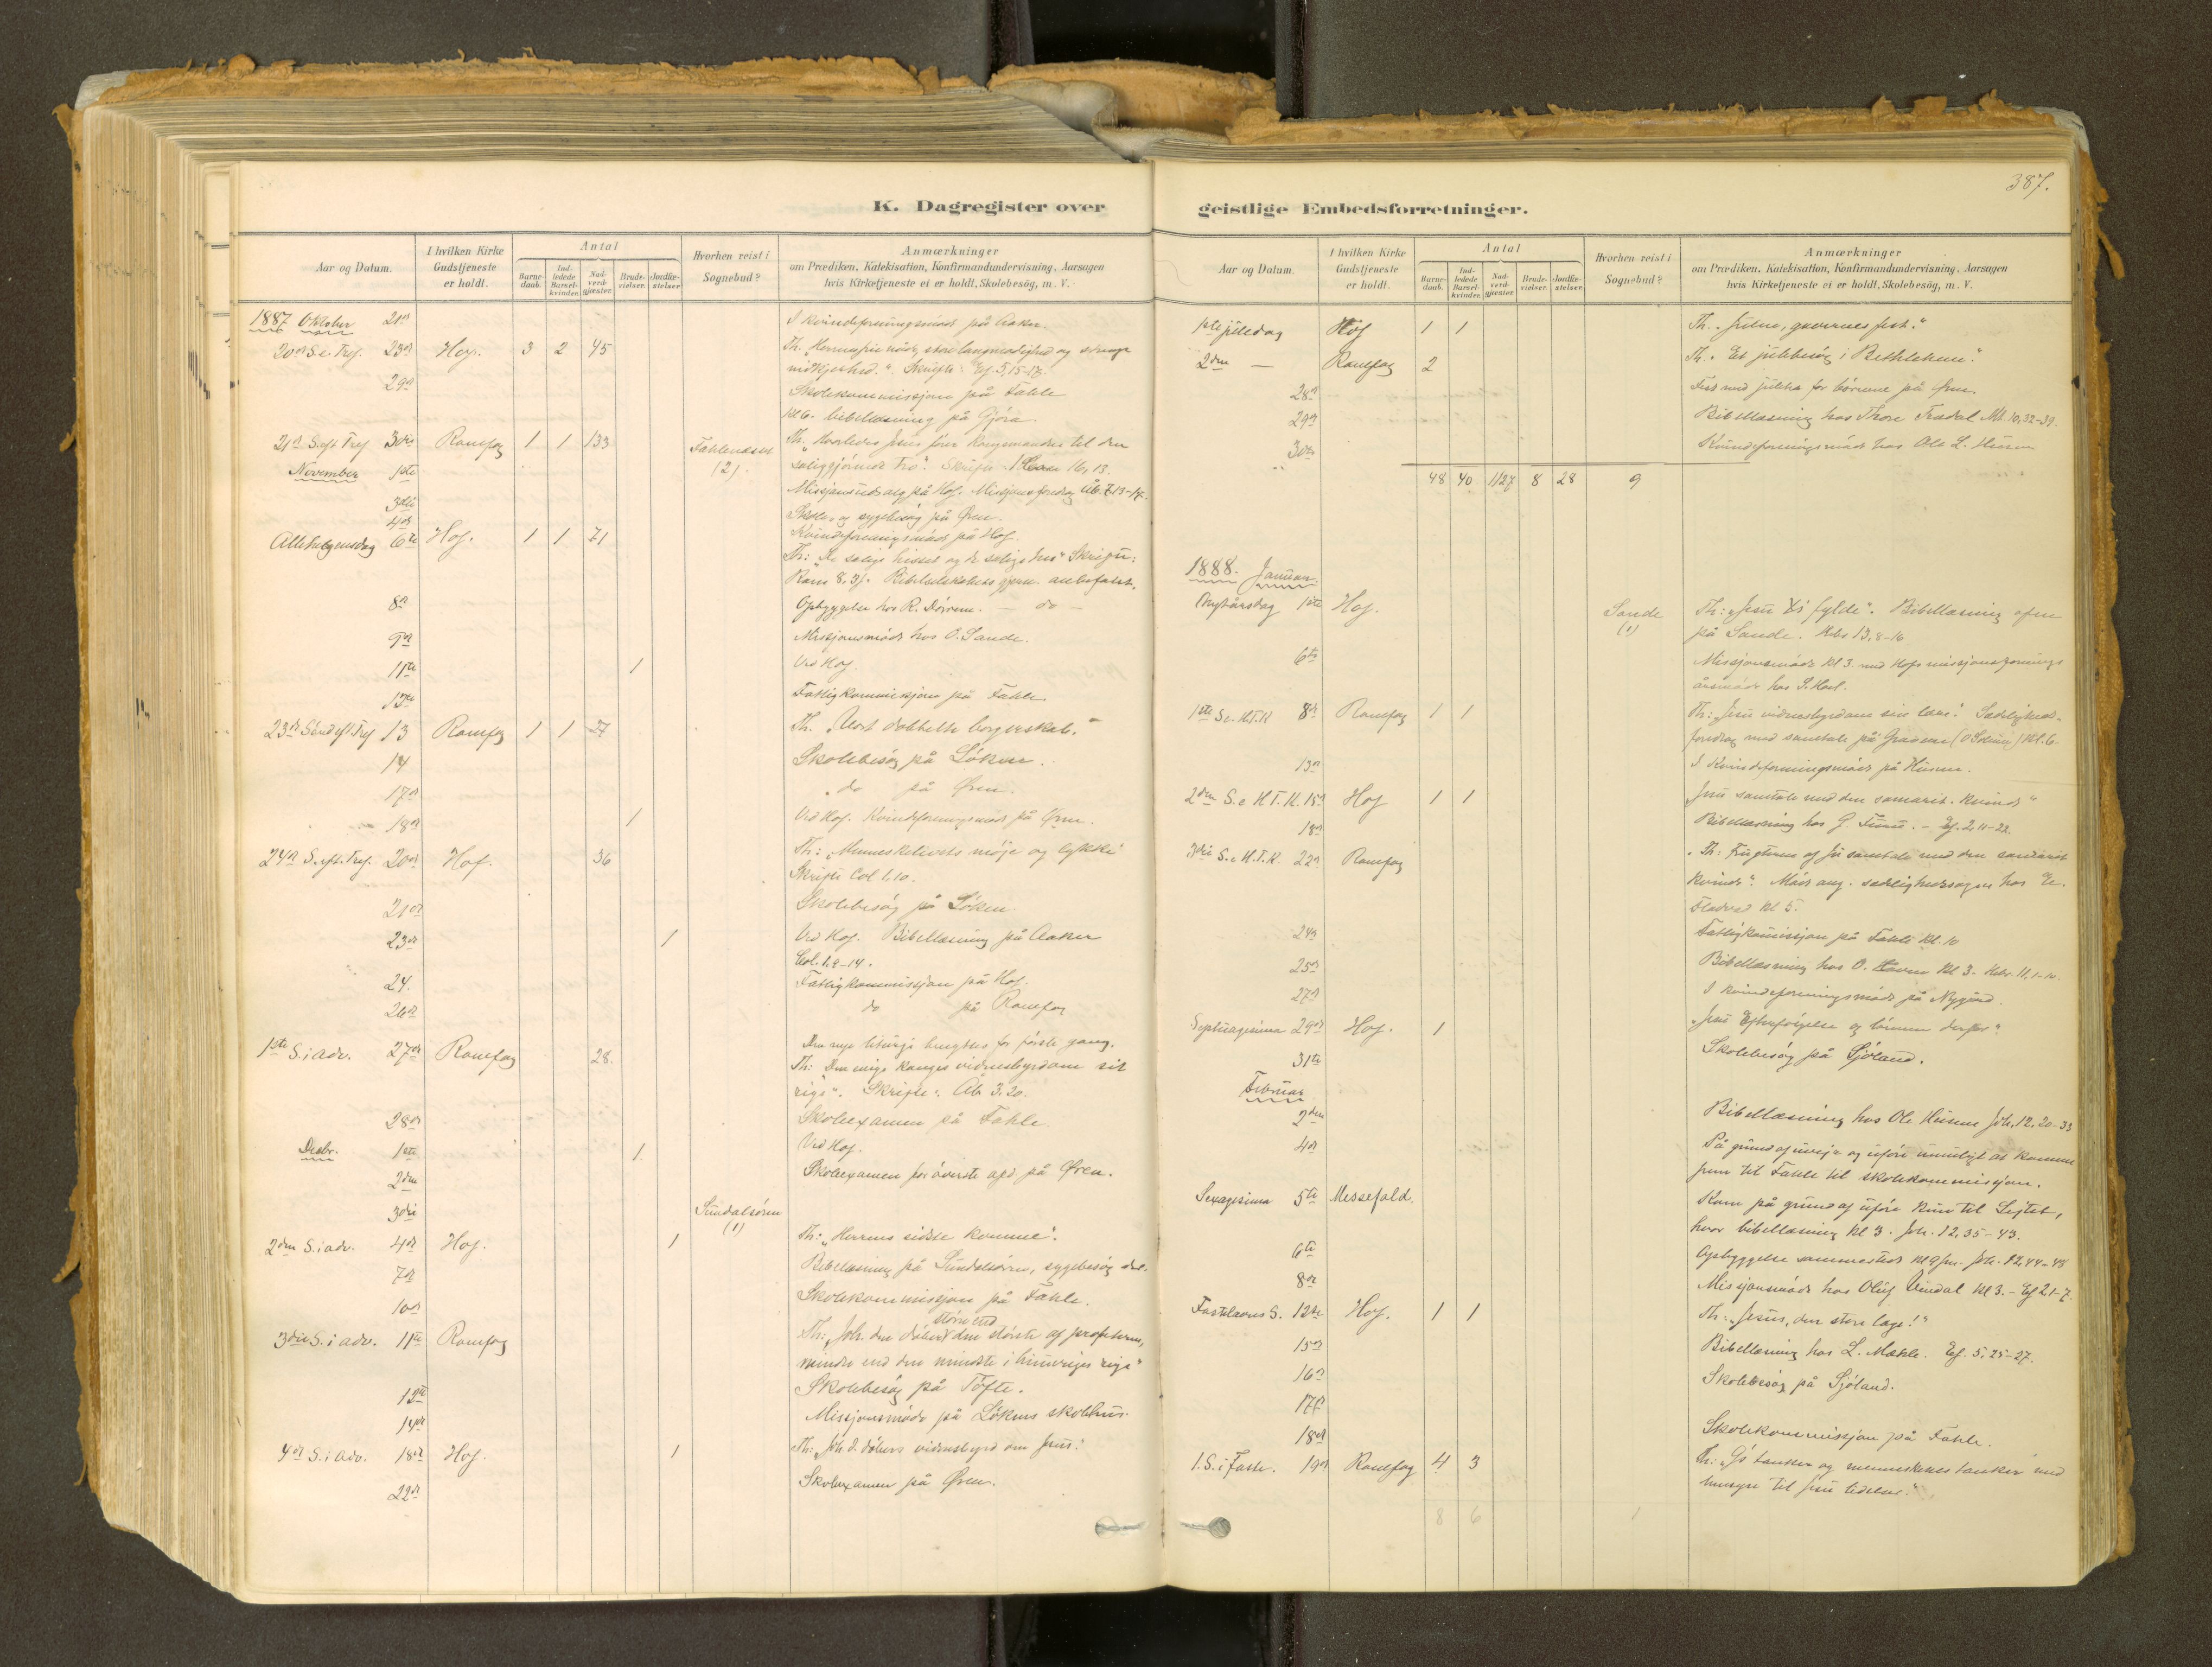 K. Dagregister over
Aar og Datum.
I hvilken Kirke Gudstjeneste er holdt.
Antal
Barne-daab.
Ind-ledede Barsel-kvinder.
Nad-verd-gjæster.
Brude-vielser.
Jordfæ-stelser.
Hvorhen reist i Sognebud?
Anmærkninger
om Prædiken, Katekisation, Konfirmandundervisning, Aarsagen
hvis Kirketjeneste ei er holdt, Skolebesög, m. V.
1887 Oktober 21de I kvindeforeningsmøde på Aaker.
20de S. e. Tref. 23de Hof. 3 2 45 Th. store langmodighed og strenge
nidkjærhed." Skrifte: Ef. 5, 15-17.
29de Skolekommissjon på Fahle
kl 6. bibellæsning på Gjøra.
21de S. eft Tref 30te Romfog 1 1 133 Th. Hvorledes Jesus fører kongemanden til den
(2) saliggjørende Tro". Skrifte 1 Cor 16, 13.
November 1ste Missjonsudsalg på Hof. Missjonsforedrag
3die Skole- og sygebesøg på Øren.
4de Kvindeforeningsmøde på Hof.
Allehelgensdag 6te Hof. 1 1 71 Th: "De salige hisset og de salige her" Skrifte:
Rom 8, 31. anbefalet.
8de Opbyggelse hos R. – do –
9de Missjonsmøde hos O. Sande.
11te 1 Ved Hof.
12te Fattigkommissjon på Fahle.
23de Sønd eft Tref 13 Romfog 1 1 Th. "Vort dobbelte borgerskab."
14 Skolebesøg på Løken.
17de do på Øren.
18de 1 Ved Hof. Kvindeforeningsmøde på Øren.
24de S. eft. Tref. 20de Hof. 36 Th: "Menneskelivets møje og lykke"
Skrifte Col 1.10.
21de Skolebesøg på Løken
23de 1 Ved Hof. Bibellæsning på Aaker
Col. 1, 9-14.
24. Fattigkommissjon på Hof.
26de do på Romfog
1ste S. i adv. 27de Romfog 28. Den nye liturgi brugtes for første gang.
Th: "Den evige konges vidnesbyrd om sit
rige". Skrifte: Ab 3, 20.
28de Skoleexamen på Fahle.
Decbr. 1ste 1 Ved Hof.
2den Skoleexamen for øverste afd på Øren.
3die Sundalsøren
(1)
2den S. i adv. 4de Hof. 1 Th: "Herrens sidste komme".
7de Bibellæsning på Sundalsøren, sygebesøg
10de Skolekommissjon på Fahle.
3die S. i adv. 11te Romfog Th: "Joh. den døber den største af profeterne,
større end
mindre end den mindste i himmeriges rige"
12te Skolebesøg på Tofte.
14de Missjonsmøde på Løkens skolehus.
4de S. i adv. 18de Hof. 1 Th: "Joh d. døbers vidnesbyrd om Jesus."
22de Skoleexamen på Øren.
387.
geistlige Embedsforretninger.
Aar og Datum.
I hvilken Kirke Gudstjeneste er holdt.
Antal
Barne-daab.
Ind-ledede Barsel-kvinder.
Nad-verd-gjæster.
Brude-vielser.
Jordfæ-stelser.
Hvorhen reist i Sognebud?
Anmærkninger
om Prædiken, Katekisation, Konfirmandundervisning, Aarsagen
hvis Kirketjeneste ei er holdt, Skolebesög, m. V.
1ste juledag Hof 1 1 Th. "Julen, gavernes fest."
2den — Romfog 2 Th. "Et julebesøg i Bethlehem."
28de Fest med juletræ for børnene på Øren.
29de Bibellæsning hos Thore Mt. 10, 32-39.
30te Kvindeforeningsmøde hos Ola L. Husum
48 40 1127 8 28 9
1888. Januar.
Nytårsdag 1ste Hof. Sande Th: "Jesu fylde". Bibellæsning
(1) på Sande. Hebr 13, 8-16
6te Missjonsmøde kl 3. med Hofs missjonsforenings
årsmøde hos
1ste S. e. H.T.K 8de Romfog 1 1 Th: "Jesu vidnesbyrd om sin lære."
foredrag med samtale på kl. 6.
13de I Kvindeforeningsmøde på Husum.
2den S. e H.T.K. 15de Hof 1 1 Jesu samtale med den samarit. kvinde"
18de Bibellæsning hos G. – Ef. 2, 11-22.
3die S. e H.T.K. 22de Romfog "Th: Frugterne af Jesu samtale med den samarit
kvinde". Møde ang. sædelighedssagen hos
kl 5.
24de Fattigkommissjon på Fahle kl. 10
25de Bibellæsning hos O. kl 3. Hebr. 11, 1-10.
27de I kvindeforeningsmøde på Nygård.
Septuagesima 29de Hof. 1 "Jesu Efterfølgelse og lønnen derfor"
31te Skolebesøg på Sjøland.
Februar
2den Bibellæsning hos Ole Husum Joh. 12, 20-33
4de På grund af uveje og uføre umuligt at komme
frem til Fahle til skolekommissjon.
Sexagesima 5te Messefald. Kom på grund af uføre kun til
hvor bibellæsning kl 3. Joh. 12, 35-43.
6te Opbyggelse sammesteds kl 9 fm. Joh. 12, 44-48
8de Missjonsmøde hos Oluf kl 3. – Ef 2, 1-7.
Fastelavns S. 12te Hof. 1 1 Th: "Jesus, den store læge!"
15de Bibellæsning hos L. Mæhle. Ef. 5, 25-27.
16de Skolebesøg på Sjøland.
17de
18de Skolekommissjon på Fahle.
1. S. i Faste. 19de Romfog 4 3 Th: "Gs tanker og menneskenes tanker med
hensyn til Jesu lidelse."
8 6 1